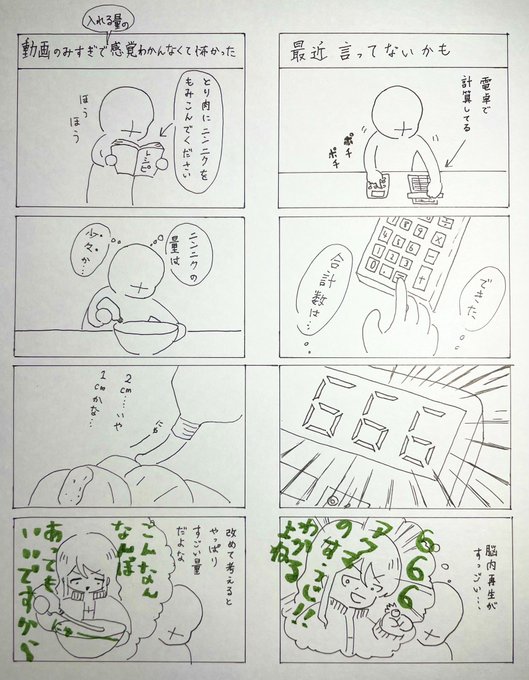 最近 言ってないかも
電卓で
計算してる
ポチ
ポチ
できた
合計数は…
666
666
アアアア
のすうじ!!
わかる
よね
脳内再生が
すっごい…
入れる量の
動画のみすぎで感覚わかんなくて怖かった
とり肉にニンニクを
もみこんでください
ほう
ほう
レシピ
ニンニクの
量は
少々か…
2cm…いや
1cmかな…
こんなん
なんぼ
あっても
いいですから
改めて考えると
やっぱり
すごい量
だよな